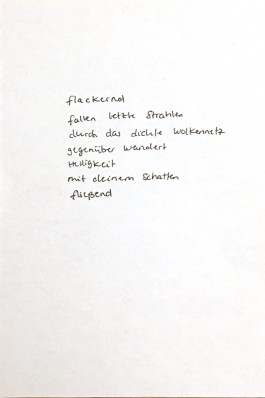 flackernd
fallen letzte Strahlen
durch das dichte Wolkennetz
gegenüber wandert
Helligkeit
mit deinem Schatten
fließend